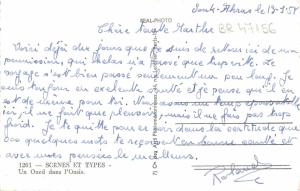 Souk-Ahras le 13-9-57
REAL-PHOTO
Chère Tante Marthe
BR 47156
Voici déjà dix jours que je suis de retour ici de ma
permission, qui hélas n'a passé que trop vite. Le
voyage s'est bien passé seulement un peu long. Je
suis toujours en excellente santé et je pense qu'il en
est de même pour toi. Nous un temps épouvantable
il ne fait que pleuvoir mais il ne fait pas trop
froid. Je te quitte pour dans la certitude que
quelques mots te en bonne santé et
avec mes pensées les meilleures.
1261 - SCENES ET TYPES -
Un Oued dans l'Oasis.
Roland